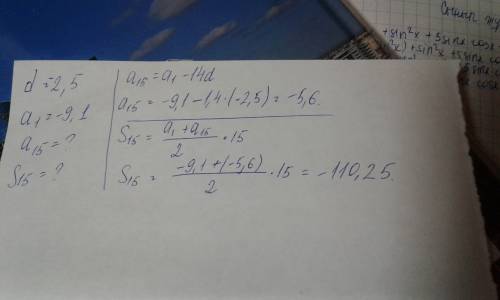 d = -2,5
a₁ = -9,1
a₁₅ = ?
S₁₅ = ?
a₁₅ = a₁ - 14d
a₁₅ = -9,1 - 1,4 · (-2,5) = -5,6.
S₁₅ = (a₁ + a₁₅)/2 · 15
S₁₅ = (-9,1 + (-5,6))/2 · 15 = -110,25.
+ sin²x + 3 sinx cosx